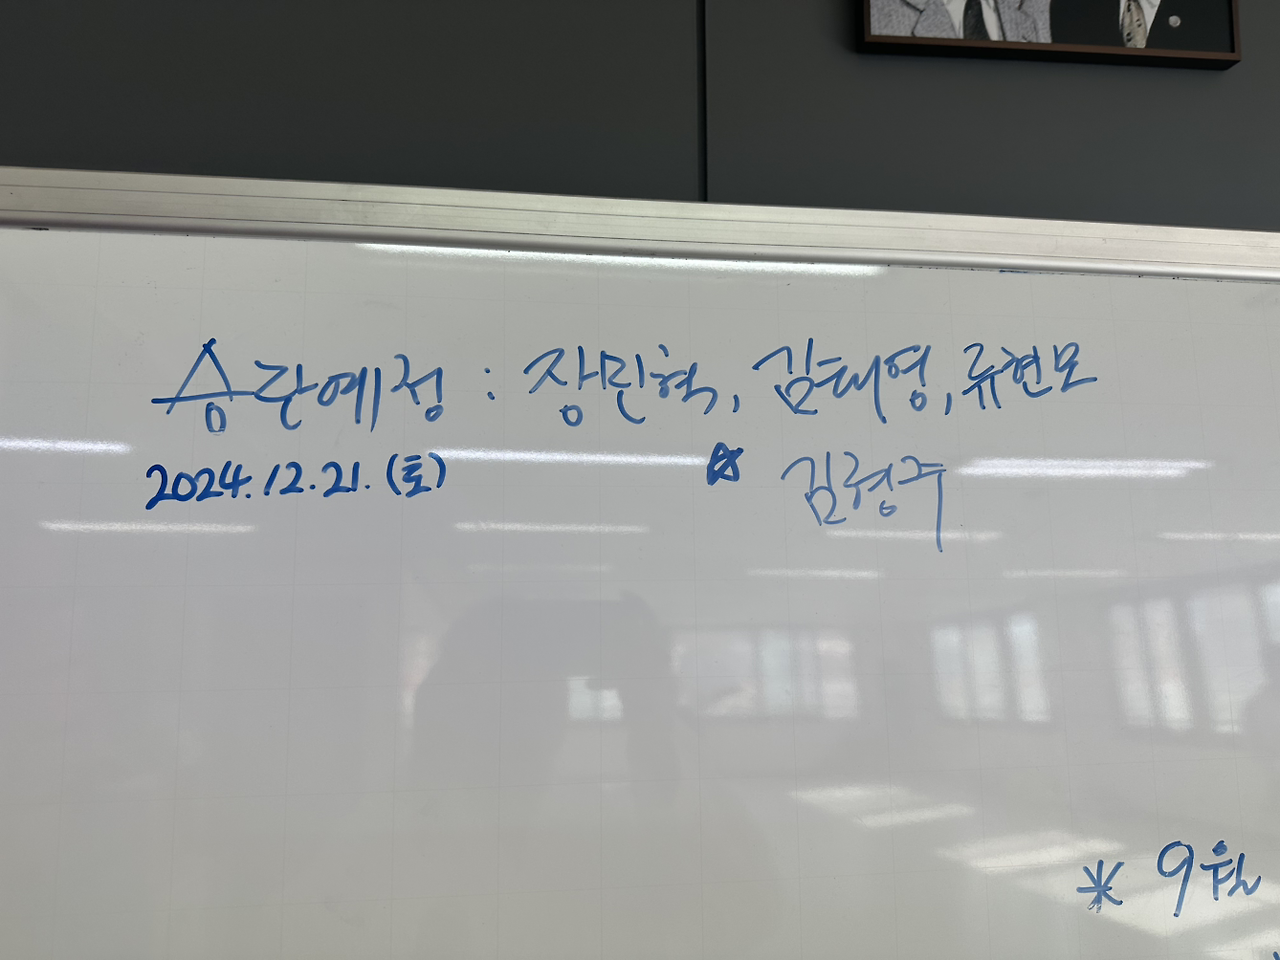 승단예정 : 장민혁, 김태영, 류현모
2024.12.21.(토) ☆ 김형주
* 9월